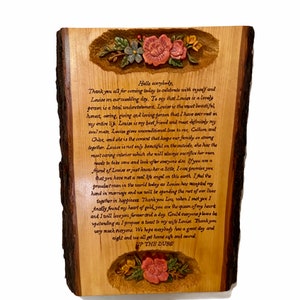 Hello everybody,
Thank you all for coming today to celebrate with myself and
Louise on our wedding day. To say that Louise is a lovely
person is a total understatement. Louise is the most beautiful,
honest, caring, giving and loving person that I have ever met in
my entire life. Louise is my best friend and most definitely my
soul mate. Louise gives unconditional love to me, Callum, and
Chloe, and she is the cement that keeps our family so strong
together. Louise is not only beautiful on the outside, she has the
most caring interior which she will always sacrifice her own
needs to take care and look after everyone else. If you are a
friend of Louise or just know her a little, I can promise you
that you have met a real life angel on this earth. I feel the
proudest man in the world today as Louise has accepted my
hand in marriage and we will be spending the rest of our lives
together in happiness. Thank you Lou, when I met you I
finally found my heart of gold, you are the queen of my heart
and I will love you forever and a day. Could everyone please be
upstanding as I propose a toast to my wife Louise. Thank you
very much everyone. We hope everybody has a great day and
night and we all get home safe and sound.
UP THE DUBS!